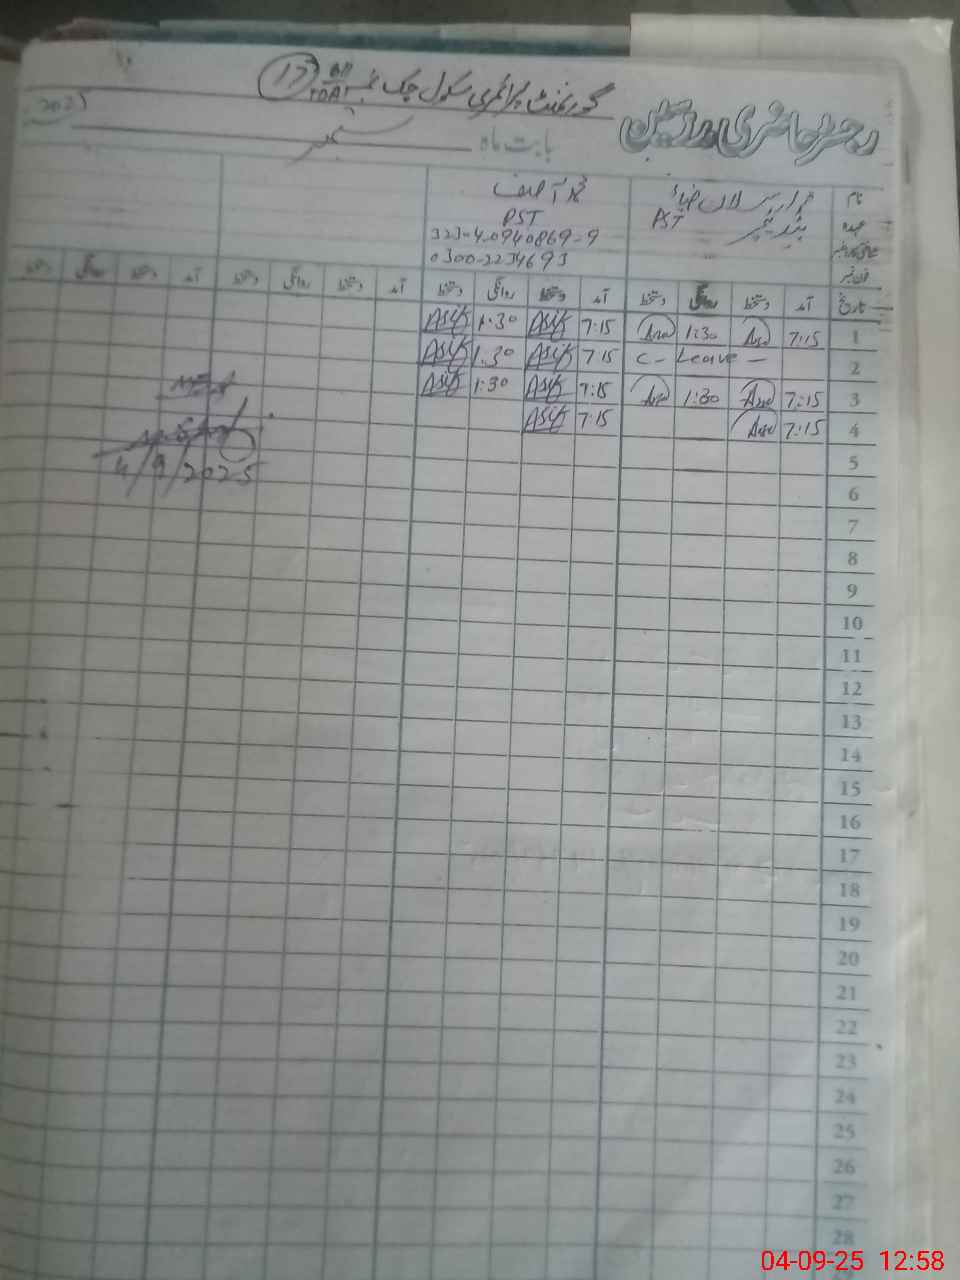 گورنمنٹ پرائمری سکول چک نمبر 17
رجسٹر حاضری مدرسین
بابت ماہ ستمبر 2025
نام محمد آصف
عہدہ PST PST
شناختی کارڈ نمبر 32304-0940869-9
فون نمبر 0300-2234693
تاریخ آمد دستخط روانگی دستخط آمد دستخط روانگی دستخط آمد دستخط روانگی دستخط آمد دستخط روانگی دستخط
1 7:15 1:30 7:15 Asif 1:30 Asif
2 C- Leave - 7:15 Asif 1:30 Asif
3 7:15 1:30 7:15 Asif 1:30 Asif
4 7:15 7:15 Asif
4/9/2025
5
6
7
8
9
10
11
12
13
14
15
16
17
18
19
20
21
22
23
24
25
26
27
28
04-09-25 12:58